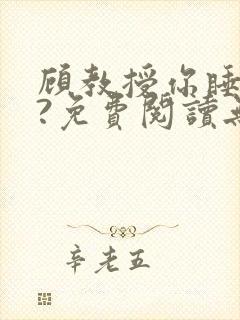 顧教授你睡
?免費閱讀
辛老五